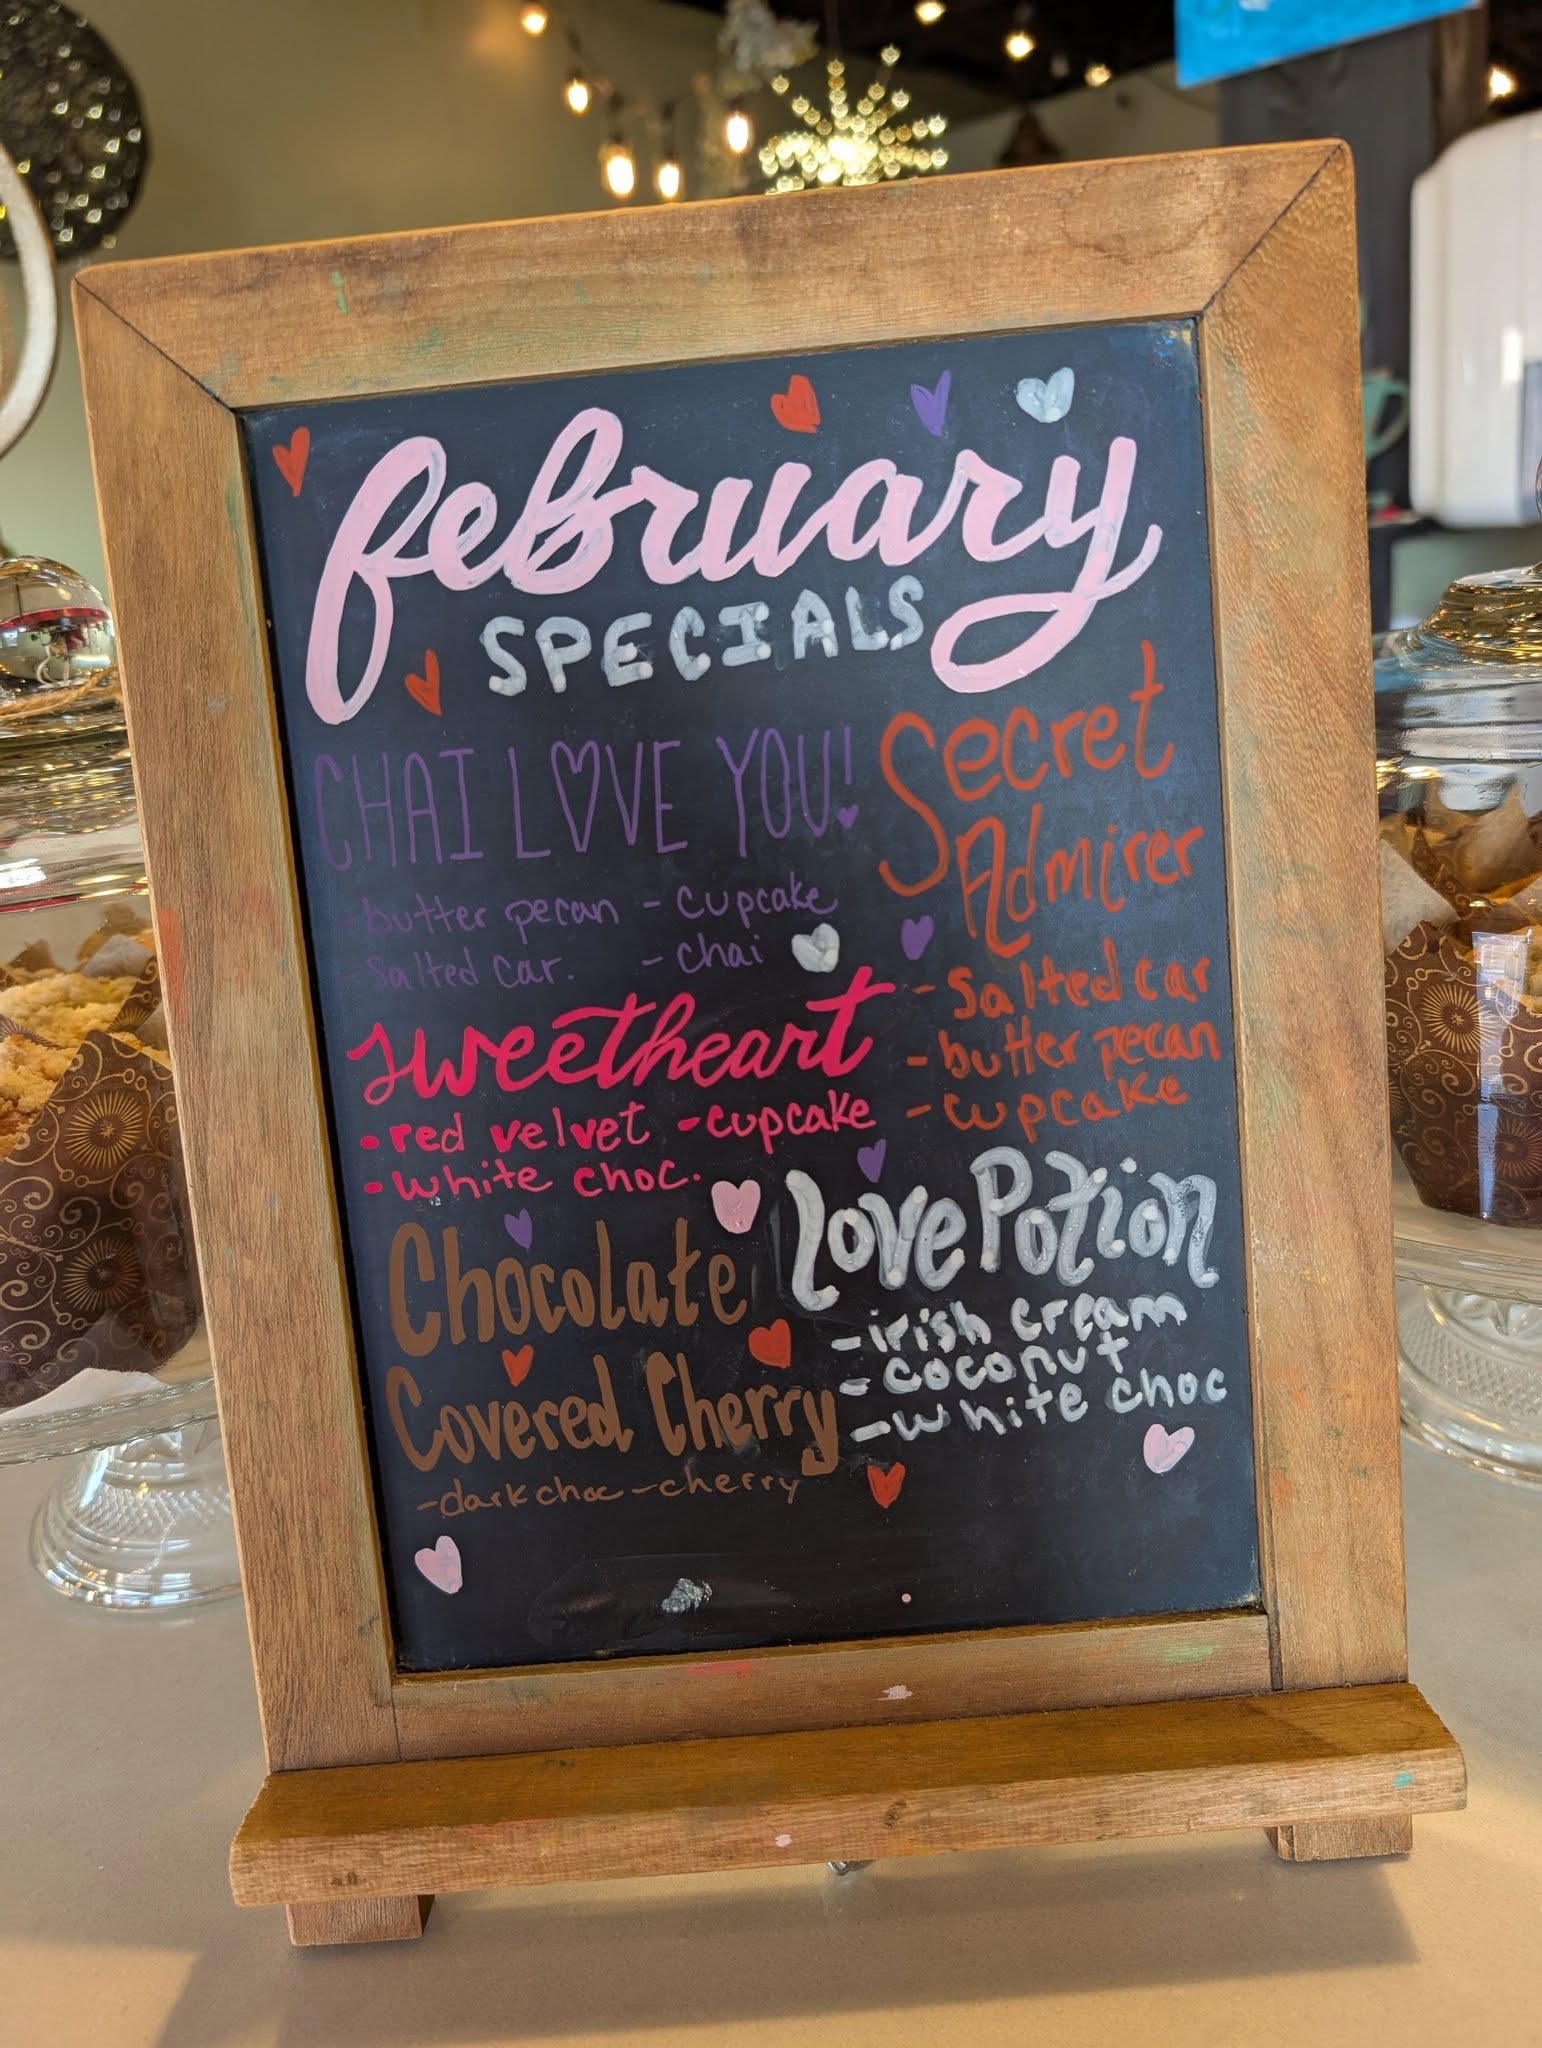 february
SPECIALS
CHAI LOVE YOU!
-butter pecan - cupcake
-salted car. - chai
Secret
Admirer
- salted car
- butter pecan
- cupcake
sweetheart
•red velvet -cupcake
•white choc.
Love Potion
-irish cream
-coconut
-white choc
Chocolate
Covered Cherry
-dark choc -cherry